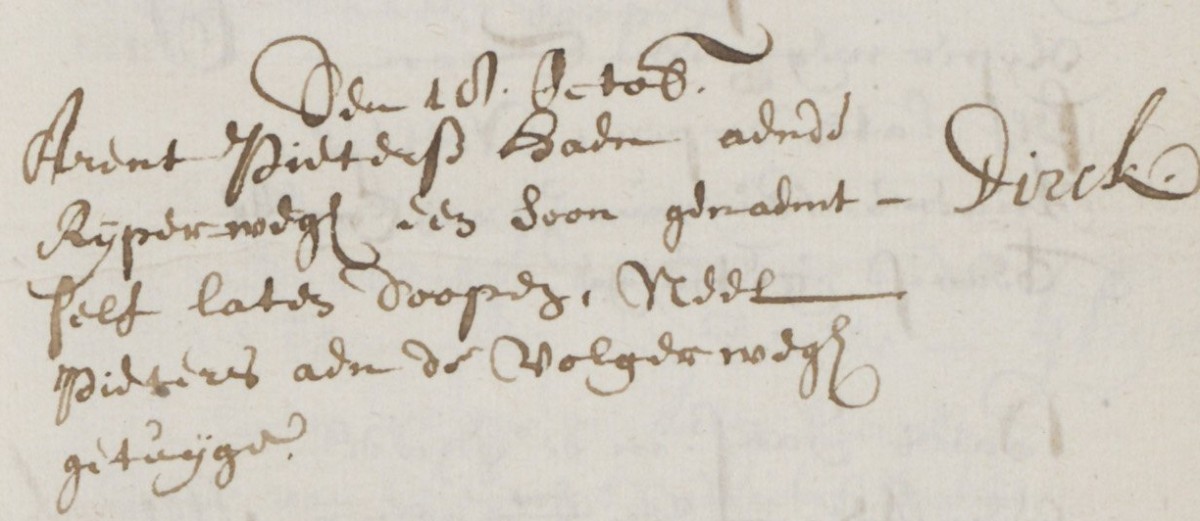 Den 18. Octob.
Arent Pieterss Baen aende
Rijperwegh een soon genaemt - Dirck.
heeft laten doopen, Neel
Pieters aen de Volgerwegh
getuyge.